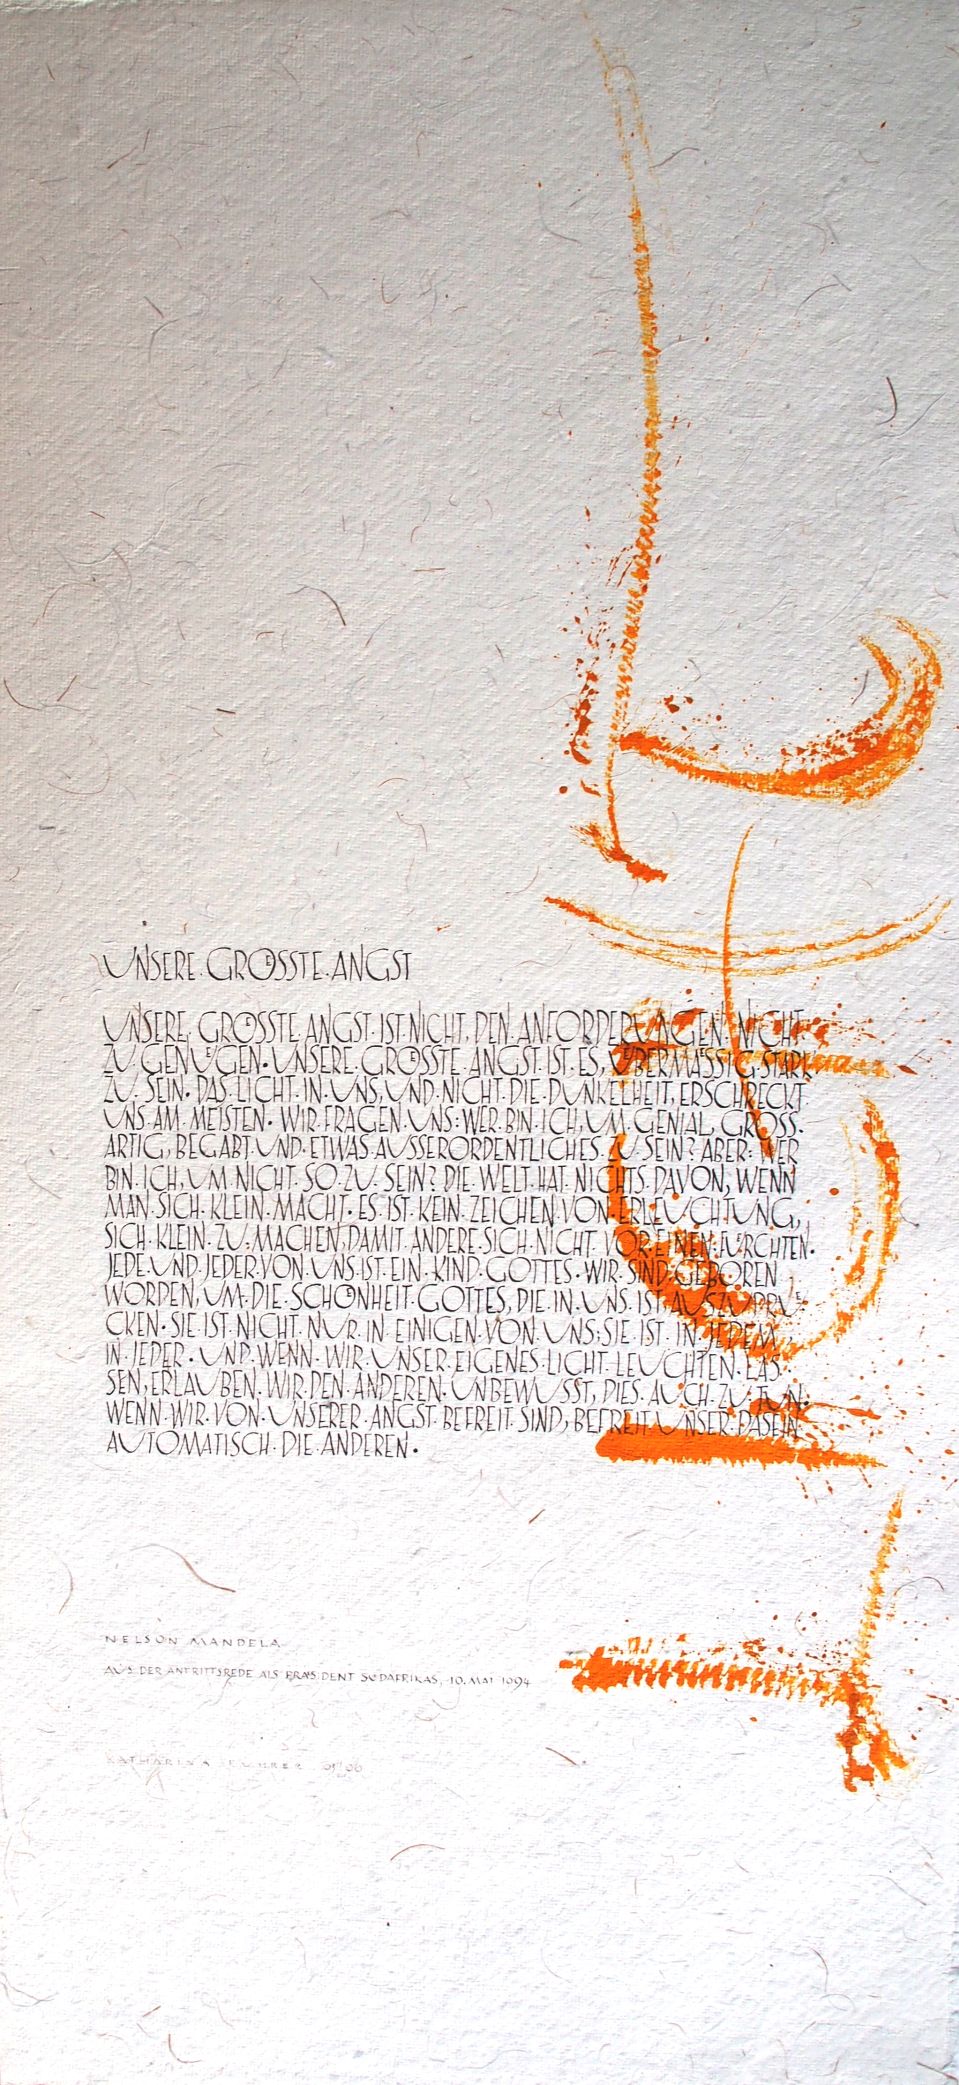 UNSERE·GRÖSSTE·ANGST
UNSERE·GRÖSSTE·ANGST·IST·NICHT, DEN·ANFORDERUNGEN·NICHT·
ZU·GENÜGEN·UNSERE·GRÖSSTE·ANGST·IST·ES, ÜBERMÄSSIG·STARK
ZU·SEIN·DAS·LICHT·IN·UNS, UND·NICHT·DIE·DUNKELHEIT, ERSCHRECKT
UNS·AM·MEISTEN·WIR·FRAGEN·UNS: WER·BIN·ICH, UM·GENIAL, GROSS·
ARTIG, BEGABT·UND·ETWAS·AUSSERORDENTLICHES·ZU·SEIN? ABER: WER
BIN·ICH, UM·NICHT·SO·ZU·SEIN? DIE·WELT·HAT·NICHTS·DAVON, WENN
MAN·SICH·KLEIN·MACHT·ES·IST·KEIN·ZEICHEN·VON·ERLEUCHTUNG,
SICH·KLEIN·ZU·MACHEN, DAMIT·ANDERE·SICH·NICHT·VOR·EINEM·FÜRCHTEN·
JEDE·UND·JEDER·VON·UNS·IST·EIN·KIND·GOTTES·WIR·SIND·GEBOREN
WORDEN, UM·DIE·SCHÖNHEIT·GOTTES, DIE·IN·UNS·IST·AUSZUDRÜ·
CKEN·SIE·IST·NICHT·NUR·IN·EINIGEN·VON·UNS; SIE·IST·IN·JEDEM,
IN·JEDER·UND, WENN·WIR·UNSER·EIGENES·LICHT·LEUCHTEN·LAS·
SEN, ERLAUBEN·WIR·DEN·ANDEREN·UNBEWUSST, DIES·AUCH·ZU·TUN·
WENN·WIR·VON·UNSERER·ANGST·BEFREIT·SIND, BEFREIT·UNSER·DASEIN
AUTOMATISCH·DIE·ANDEREN·
NELSON MANDELA
AUS DER ANTRITTSREDE ALS PRÄSIDENT SÜDAFRIKAS, 10. MAI 1994
KATHARINA